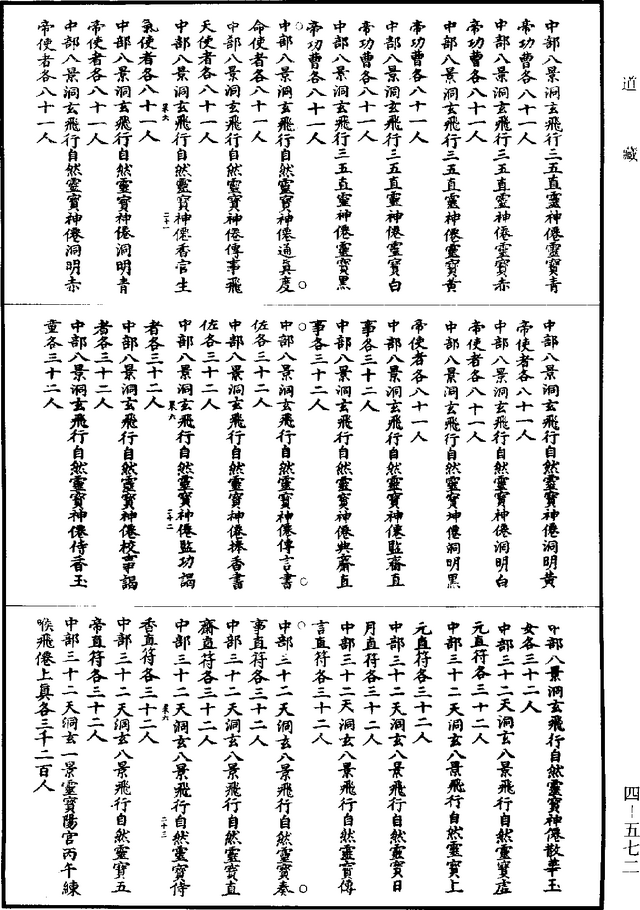 道藏
中部八景洞玄飛行三五直靈神僊靈寶青
帝功曹各八十一人
中部八景洞玄飛行三五直靈神僊靈寶赤
帝功曹各八十一人
中部八景洞玄飛行三五直靈神僊靈寶黃
帝功曹各八十一人
中部八景洞玄飛行三五直靈神僊靈寶白
帝功曹各八十一人
中部八景洞玄飛行三五直靈神僊靈寶黑
帝功曹各八十一人
中部八景洞玄飛行自然靈寶神僊通眞度
命使者各八十一人
中部八景洞玄飛行自然靈寶神僊傳事飛
天使者各八十一人
中部八景洞玄飛行自然靈寶神僊香官生
菜六 二十一
炁使者各八十一人
中部八景洞玄飛行自然靈寶神僊洞明青
帝使者各八十一人
中部八景洞玄飛行自然靈寶神僊洞明赤
帝使者各八十一人
中部八景洞玄飛行自然靈寶神僊洞明黃
帝使者各八十一人
中部八景洞玄飛行自然靈寶神僊洞明白
帝使者各八十一人
中部八景洞玄飛行自然靈寶神僊洞明黑
帝使者各八十一人
中部八景洞玄飛行自然靈寶神僊監齋直
事各三十二人
中部八景洞玄飛行自然靈寶神僊典齋直
事各三十二人
中部八景洞玄飛行自然靈寶神僊傳言書
佐各三十二人
中部八景洞玄飛行自然靈寶神僊捧香書
佐各三十二人
中部八景洞玄飛行自然靈寶神僊監功謁
菜六 二十二
者各三十二人
中部八景洞玄飛行自然靈寶神僊校事謁
者各三十二人
中部八景洞玄飛行自然靈寶神僊侍香玉
童各三十二人
中部八景洞玄飛行自然靈寶神僊散華玉
女各三十二人
中部三十二天洞玄八景飛行自然靈寶虛
元直符各三十二人
中部三十二天洞玄八景飛行自然靈寶上
元直符各三十二人
中部三十二天洞玄八景飛行自然靈寶日
月直符各三十二人
中部三十二天洞玄八景飛行自然靈寶傳
言直符各三十二人
中部三十二天洞玄八景飛行自然靈寶奏
事直符各三十二人
中部三十二天洞玄八景飛行自然靈寶直
齋直符各三十二人
中部三十二天洞玄八景飛行自然靈寶侍
菜六 二十三
香直符各三十二人
中部三十二天洞玄八景飛行自然靈寶五
帝直符各三十二人
中部三十二天洞玄一景靈寶陽宮丙午練
喉飛僊上眞各三千二百人
四-五七二